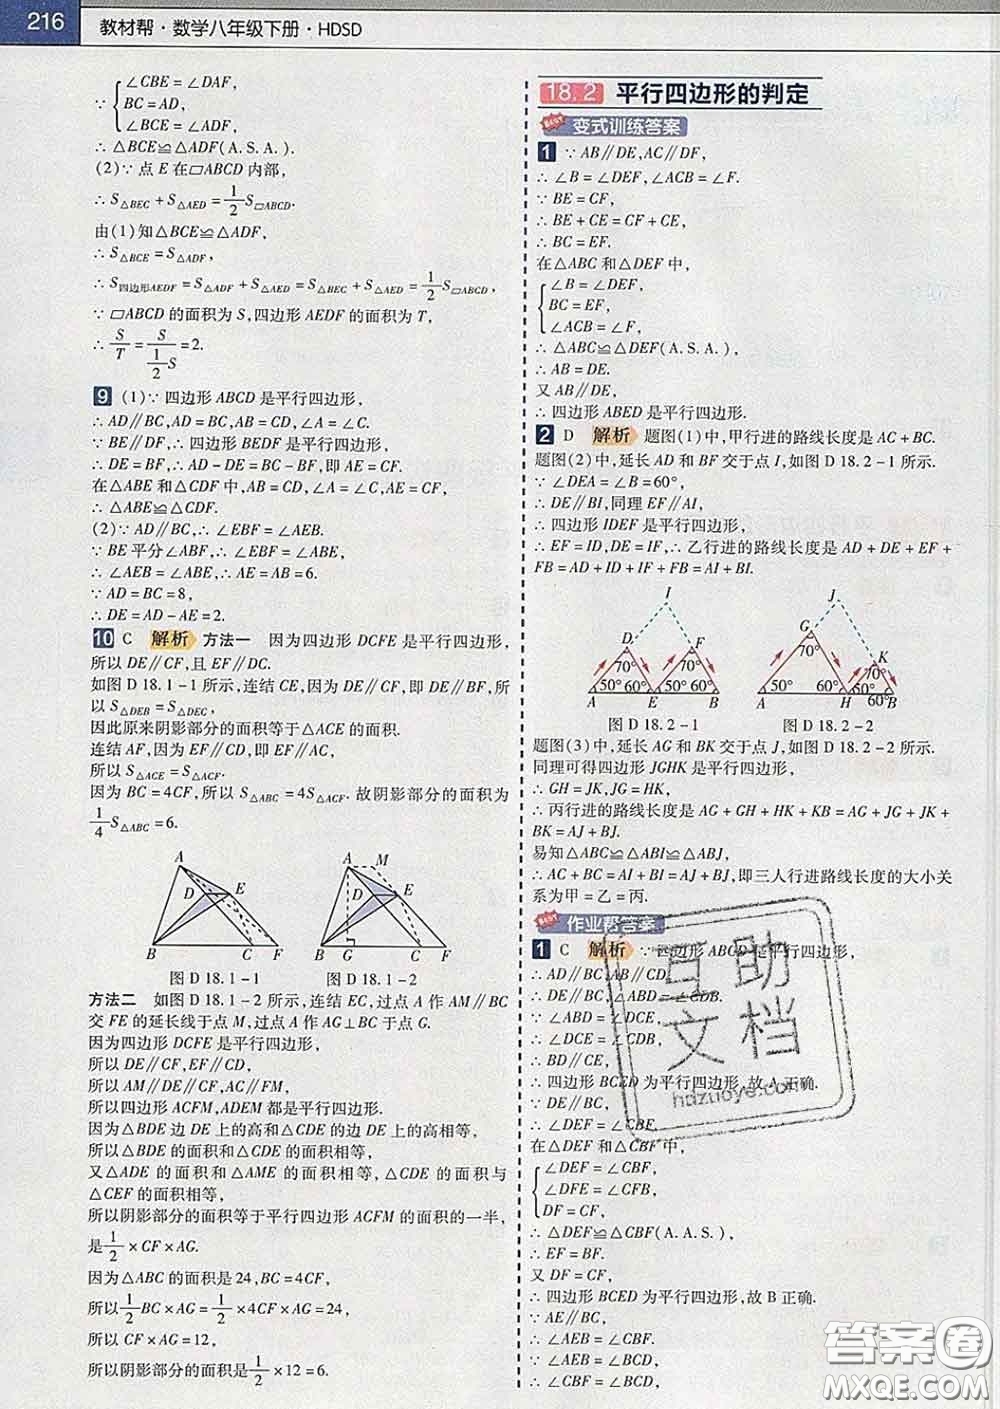 216 教材帮·数学八年级下册·HDSD
∠CBE = ∠DAF,
∵ BC = AD,
∠BCE = ∠ADF,
∴ △BCE≌△ADF(A.S.A.).
(2)∵ 点 E 在▱ABCD 内部,
∴ S△BEC + S△AED = 1/2 S▱ABCD.
由(1)知△BCE≌△ADF,
∴ S△BCE = S△ADF,
∴ S四边形AEDF = S△ADF + S△AED = S△BEC + S△AED = 1/2 S▱ABCD,
∵ ▱ABCD 的面积为 S,四边形 AEDF 的面积为 T,
∴ S/T = S/(1/2 S) = 2.
9 (1)∵ 四边形 ABCD 是平行四边形,
∴ AD∥BC,AD = BC,AB = CD,∠A = ∠C.
∵ BE∥DF,∴ 四边形 BEDF 是平行四边形,
∴ DE = BF,∴ AD − DE = BC − BF,即 AE = CF.
在△ABE 和△CDF 中,AB = CD,∠A = ∠C,AE = CF,
∴ △ABE≌△CDF.
(2)∵ AD∥BC,∴ ∠EBF = ∠AEB.
∵ BE 平分∠ABF,∴ ∠EBF = ∠ABE,
∴ ∠AEB = ∠ABE,∴ AE = AB = 6.
∵ AD = BC = 8,
∴ DE = AD − AE = 2.
10 C 解析 方法一 因为四边形 DCFE 是平行四边形,
所以 DE∥CF,且 EF∥DC.
如图 D 18.1 - 1 所示,连结 CE,因为 DE∥CF,即 DE∥BF,所
以 S△DEB = S△DEC,
因此原来阴影部分的面积等于△ACE 的面积.
连结 AF,因为 EF∥CD,即 EF∥AC,
所以 S△ACE = S△ACF.
因为 BC = 4CF,所以 S△ABC = 4S△ACF. 故阴影部分的面积为
1/4 S△ABC = 6.
A D E B C F
A M D E B G C F
图 D 18.1 - 1 图 D 18.1 - 2
方法二 如图 D 18.1 - 2 所示,连结 EC,过点 A 作 AM∥BC
交 FE 的延长线于点 M,过点 A 作 AG⊥BC 于点 G.
因为四边形 DCFE 是平行四边形,
所以 DE∥CF,EF∥CD,
所以 AM∥DE∥CF,AC∥FM,
所以四边形 ACFM,ADEM 都是平行四边形.
因为△BDE 边 DE 上的高和△CDE 的边 DE 上的高相等,
所以△BDE 的面积和△CDE 的面积相等,
又△ADE 的面积和△AME 的面积相等,△CDE 的面积与
△CEF 的面积相等,
所以阴影部分的面积等于平行四边形 ACFM 的面积的一半,
是 1/2 × CF × AG.
因为△ABC 的面积是 24,BC = 4CF,
所以 1/2 BC × AG = 1/2 × 4CF × AG = 24,
所以 CF × AG = 12,
所以阴影部分的面积是 1/2 × 12 = 6.
18.2 平行四边形的判定
变式训练答案
1 ∵ AB∥DE,AC∥DF,
∴ ∠B = ∠DEF,∠ACB = ∠F.
∵ BE = CF,
∴ BE + CE = CF + CE,
∴ BC = EF.
在△ABC 和△DEF 中,
∠B = ∠DEF,
BC = EF,
∠ACB = ∠F,
∴ △ABC≌△DEF(A.S.A.),
∴ AB = DE.
又 AB∥DE,
∴ 四边形 ABED 是平行四边形.
2 D 解析 题图(1)中,甲行进的路线长度是 AC + BC.
题图(2)中,延长 AD 和 BF 交于点 I,如图 D 18.2 - 1 所示.
∵ ∠DEA = ∠B = 60°,
∴ DE∥BI,同理 EF∥AI,
∴ 四边形 IDEF 是平行四边形,
∴ EF = ID,DE = IF,∴ 乙行进的路线长度是 AD + DE + EF +
FB = AD + ID + IF + FB = AI + BI.
I D F 70° 70° 50° 60° 50° 60° A E B
J G K 70° 70° 50° 60° 50° 60° A H B
图 D 18.2 - 1 图 D 18.2 - 2
题图(3)中,延长 AG 和 BK 交于点 J,如图 D 18.2 - 2 所示.
同理可得四边形 JGHK 是平行四边形,
∴ GH = JK,JG = HK,
∴ 丙行进的路线长度是 AG + GH + HK + KB = AG + JG + JK +
BK = AJ + BJ.
易知△ABC≌△ABI≌△ABJ,
∴ AC + BC = AI + BI = AJ + BJ,即三人行进路线长度的大小关
系为甲 = 乙 = 丙.
作业帮答案
1 C 解析 ∵ 四边形 ABCD 是平行四边形,
∴ AD∥BC,AB∥CD,
∴ DE∥BC,∠ABD = ∠CDB.
∵ ∠ABD = ∠DCE,
∴ ∠DCE = ∠CDB,
∴ BD∥CE,
∴ 四边形 BCED 为平行四边形,故 A 正确.
∵ DE∥BC,
∴ ∠DEF = ∠CBF,
在△DEF 和△CBF 中,
∠DEF = ∠CBF,
∠DFE = ∠CFB,
DF = CF,
∴ △DEF≌△CBF(A.A.S.),
∴ EF = BF.
又 DF = CF,
∴ 四边形 BCED 为平行四边形,故 B 正确.
∵ AE∥BC,
∴ ∠AEB = ∠CBF.
∴ ∠CBF = ∠BCD,
互助文档
hdzuoye.com
答案圈
MXQE.COM